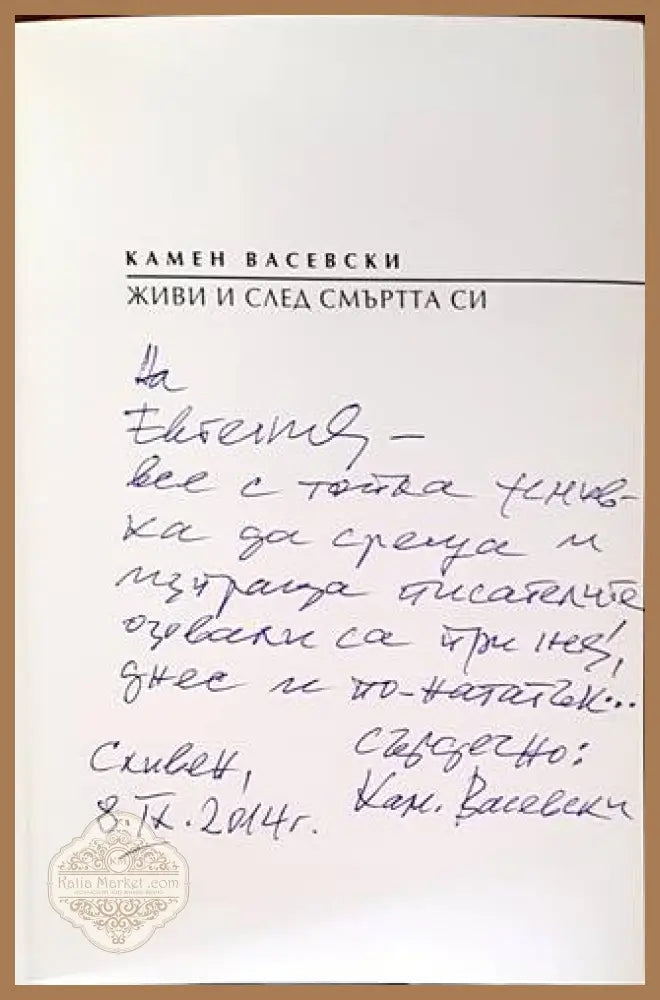 КАМЕН ВАСЕВСКИ
ЖИВИ И СЛЕД СМЪРТТА СИ
На
Евгения –
все с топла усмив-
ка да среща и
изпраща писателите
озовали са при нея,
днес и по-нататък...
Сърдечно:
Сливен,
Кам. Васевски
8.IX.2014г.
Kalia Market .com